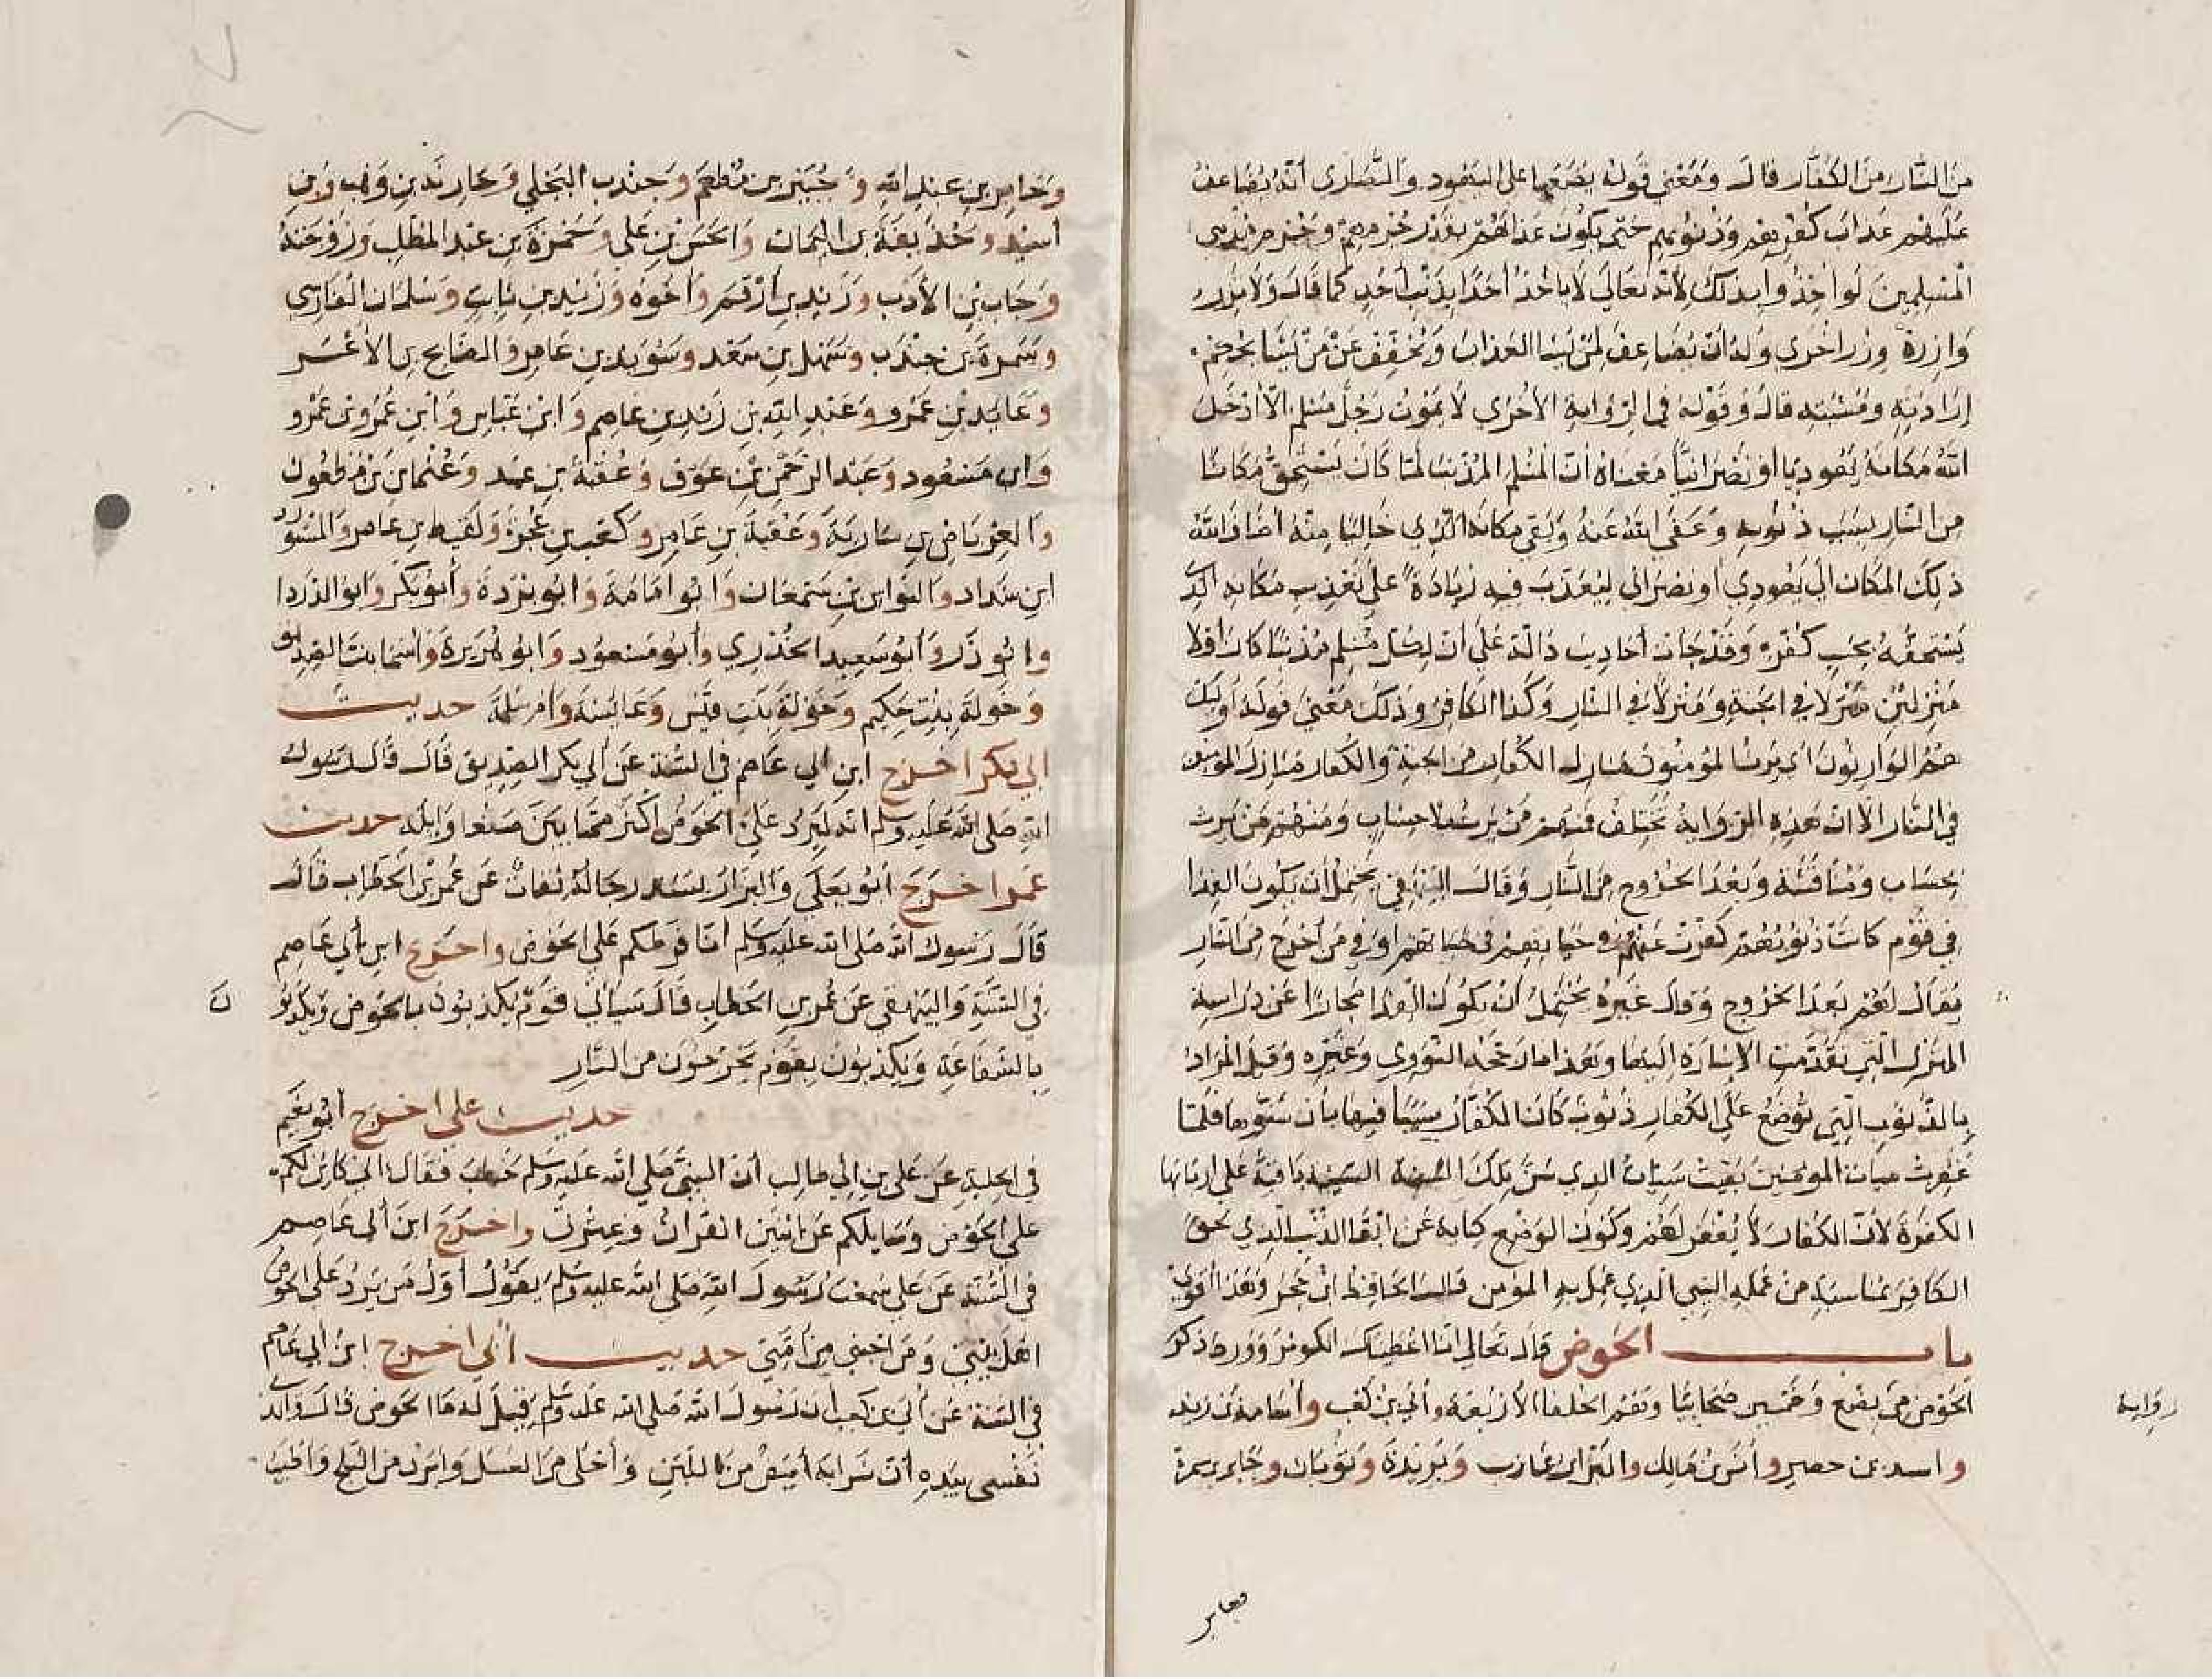 من النار من الكفار قال ومعنى قوله يضعها على اليهود والنصارى أنه يضاعف
عليهم عذاب كفرهم وذنوبهم حتى يكون عذابهم بقدر جرمهم وجرم مذنبي
المسلمين لو أخذوا بذلك لأنه تعالى لا يأخذ أحدا بذنب أحد كما قال ولا تزر
وازرة وزر أخرى وله أن يضاعف لمن يشا العذاب ويخفف عن من يشا بحكم
إرادته ومشيته قال وقوله في الرواية الأخرى لا يموت رجل مسلم إلا أدخل
الله مكانه يهوديا أو نصرانيا معناه أن المسلم المذنب لما كان يستحق مكانا
من النار بسبب ذنوبه وعفى الله عنه وبقي مكانه الذي خاليا منه أضاف الله
ذلك المكان إلى يهودي أو نصراني ليعذب فيه زيادة على تعذيب مكانه الذي
يستحقه بحسب كفره وقد جات أحاديث دالة على أن لكل مسلم مذنبا كان أو لا
منزلين منزلا في الجنة ومنزلا في النار وكذا الكافر وذلك معنى قوله أوليك
هم الوارثون أي يرث المؤمنون منازل الكفار من الجنة والكفار منازل المؤمنين
في النار إلا أن هذه الوراثة تختلف فمنهم من يرث بلا حساب ومنهم من يرث
بحساب ومناقشة وبعد الخروج من النار وقال البيهقي يحتمل أن يكون الفدا
في قوم كانت ذنوبهم كفرت عنهم في حياتهم أو في من أخرج من النار
يقال لهم بعد الخروج وقال غيره يحتمل أن يكون الفدا مجازا عن وراثة
المنزل التي تقدمت الإشارة إليها وهذا ما رجحه النووي وغيره وقيل المراد
بالذنوب التي توضع على الكفار ذنوب كان الكفار سببا فيها بأن سنوها فلما
غفرت سيات المؤمنين بقيت سيات الذي سن تلك السنة السيئة باقية على أربابها
الكفرة لأن الكفار لا يغفر لهم وكون الوضع كناية عن إبقا الذنب الذي لحق
الكافر بما سنه من عمله السيي الذي عمل به المؤمن قال الحافظ ابن حجر وهذا أقوى
باب الحوض قال تعالى إنا أعطيناك الكوثر وورد ذكر
الحوض من بضع وخمسين صحابيا وهم الخلفا الأربعة وأبي بن كعب وأسامة بن زيد
رواية
وأسيد بن حضير وأنس بن مالك والبراء بن عازب وبريدة وثوبان وجابر بن سمرة
وجابر بن عبد الله وجبير بن مطعم وجندب البجلي وحارثة بن وهب و
أسيد وحذيفة بن اليمان والحسن بن علي وحمزة بن عبد المطلب وزوجته
وخباب بن الأرت وزيد بن أرقم وأخوه وزيد بن ثابت وسلمان الفارسي
وسمرة بن جندب وسهل بن سعد وسويد بن عامر والصنابح بن الأعسر
وعايذ بن عمرو وعبد الله بن زيد بن عاصم وابن عباس وابن عمر وبن عمرو
وابن مسعود وعبد الرحمن بن عوف وعتبة بن عبد وعثمان بن مظعون
والعرباض بن سارية وعقبة بن عامر وكعب بن عجرة ولقيط بن عامر والمستورد
ابن شداد والنواس بن سمعان وأبو أمامة وأبو برزة وأبو بكرة وأبو الدردا
وأبو ذر وأبو سعيد الخدري وأبو مسعود وأبو هريرة وأسما بنت الصديق
وخولة بنت حكيم وخولة بنت قيس وعائشة وأم سلمة حديث
أبي بكر أخرج ابن أبي عاصم في السنة عن أبي بكر الصديق قال قال رسول
الله صلى الله عليه وسلم انه ليرد على الحوض أكثر مما بين صنعا وأيلة حديث
عمر أخرج أبو يعلى والبزار بسند رجاله ثقات عن عمر بن الخطاب قال
قال رسول الله صلى الله عليه وسلم أنا فرطكم على الحوض وأخرج ابن أبي عاصم
في السنة والبيهقي عن عمر بن الخطاب قال سيأتي قوم يكذبون بالحوض ويكذبو
ن
بالشفاعة ويكذبون بقوم يخرجون من النار
حديث علي أخرج أبو نعيم
في الحلية عن علي بن أبي طالب أن النبي صلى الله عليه وسلم خطب فقال إني كاين لكم
على الحوض وسايلكم عن اثنين القران وعترتي وأخرج ابن أبي عاصم
في السنة عن علي سمعت رسول الله صلى الله عليه وسلم يقول أول من يرد على الحوض
أهل بيتي ومن أحبني من أمتي حديث أبي أخرج ابن أبي عاصم
في السنة عن أبي بن كعب أن رسول الله صلى الله عليه وسلم قيل له ما الحوض قال والذي
نفسي بيده أن شرابه أبيض من اللبن وأحلى من العسل وأبرد من الثلج وأطيب